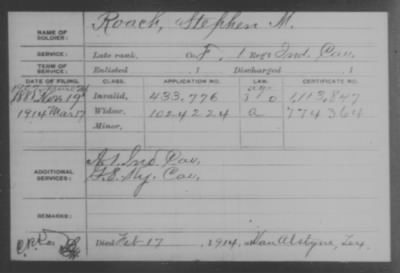 NAME OF SOLDIER: Roach, Stephen M.
SERVICE: Late rank, Co. F, 1 Reg't Ind. Cav.
TERM OF SERVICE: Enlisted , 1 Discharged , 1
DATE OF FILING. CLASS. APPLICATION NO. LAW. CERTIFICATE NO.
1888 Nov 19 Invalid, 433.776 1,113,847
1914 Mar 17 Widow, 1024224 a 774364
Minor,
ADDITIONAL SERVICES: Ind. Cav.
Ky. Cav.
REMARKS:
Died Feb 17, 1914, Van Alstyne, Tex.